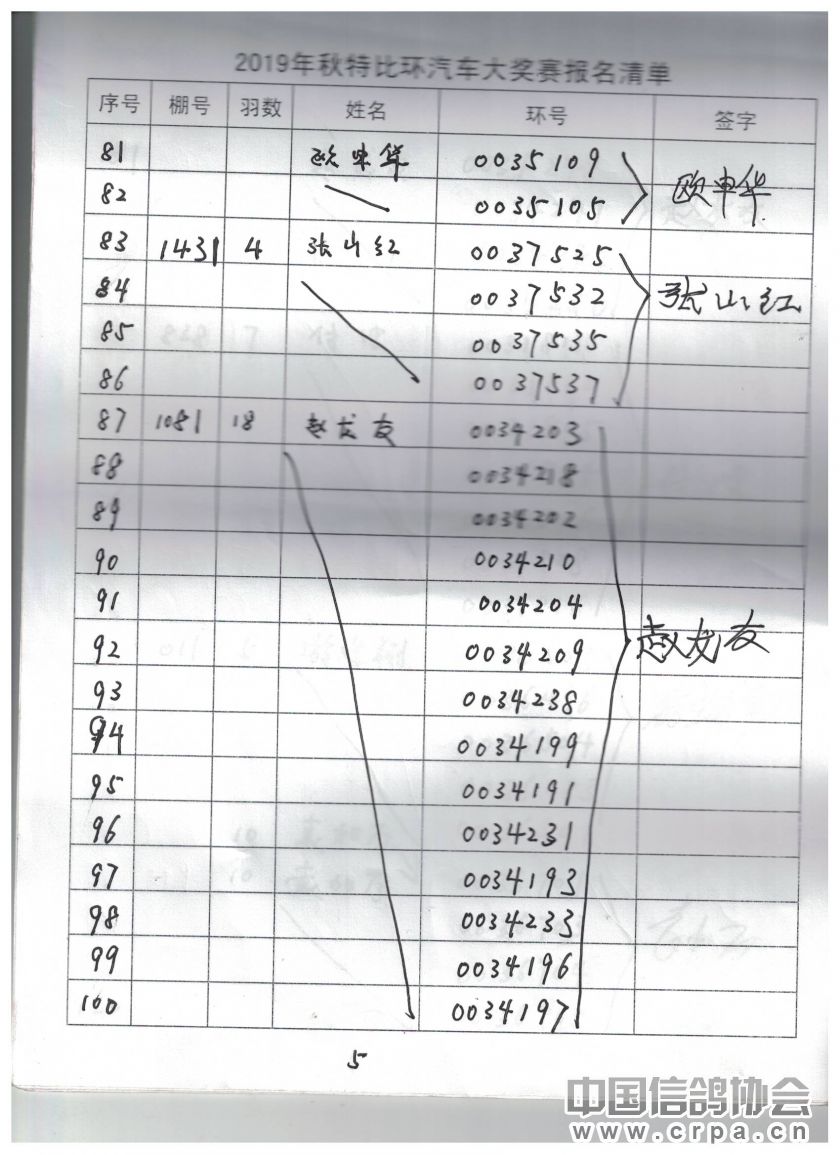 2019年秋特比环汽车大奖赛报名清单
序号 棚号 羽数 姓名 环号 签字
81 欧申华 0035109 欧申华
82 0035105
83 1431 4 张山红 0037525
84 0037532 张山红
85 0037535
86 0037537
87 1081 18 赵龙友 0034203
88 0034218
89 0034202
90 0034210
91 0034204
92 0034209 赵龙友
93 0034238
94 0034199
95 0034191
96 0034231
97 0034193
98 0034233
99 0034196
100 0034197
5
中国信鸽协会
www.crpa.cn